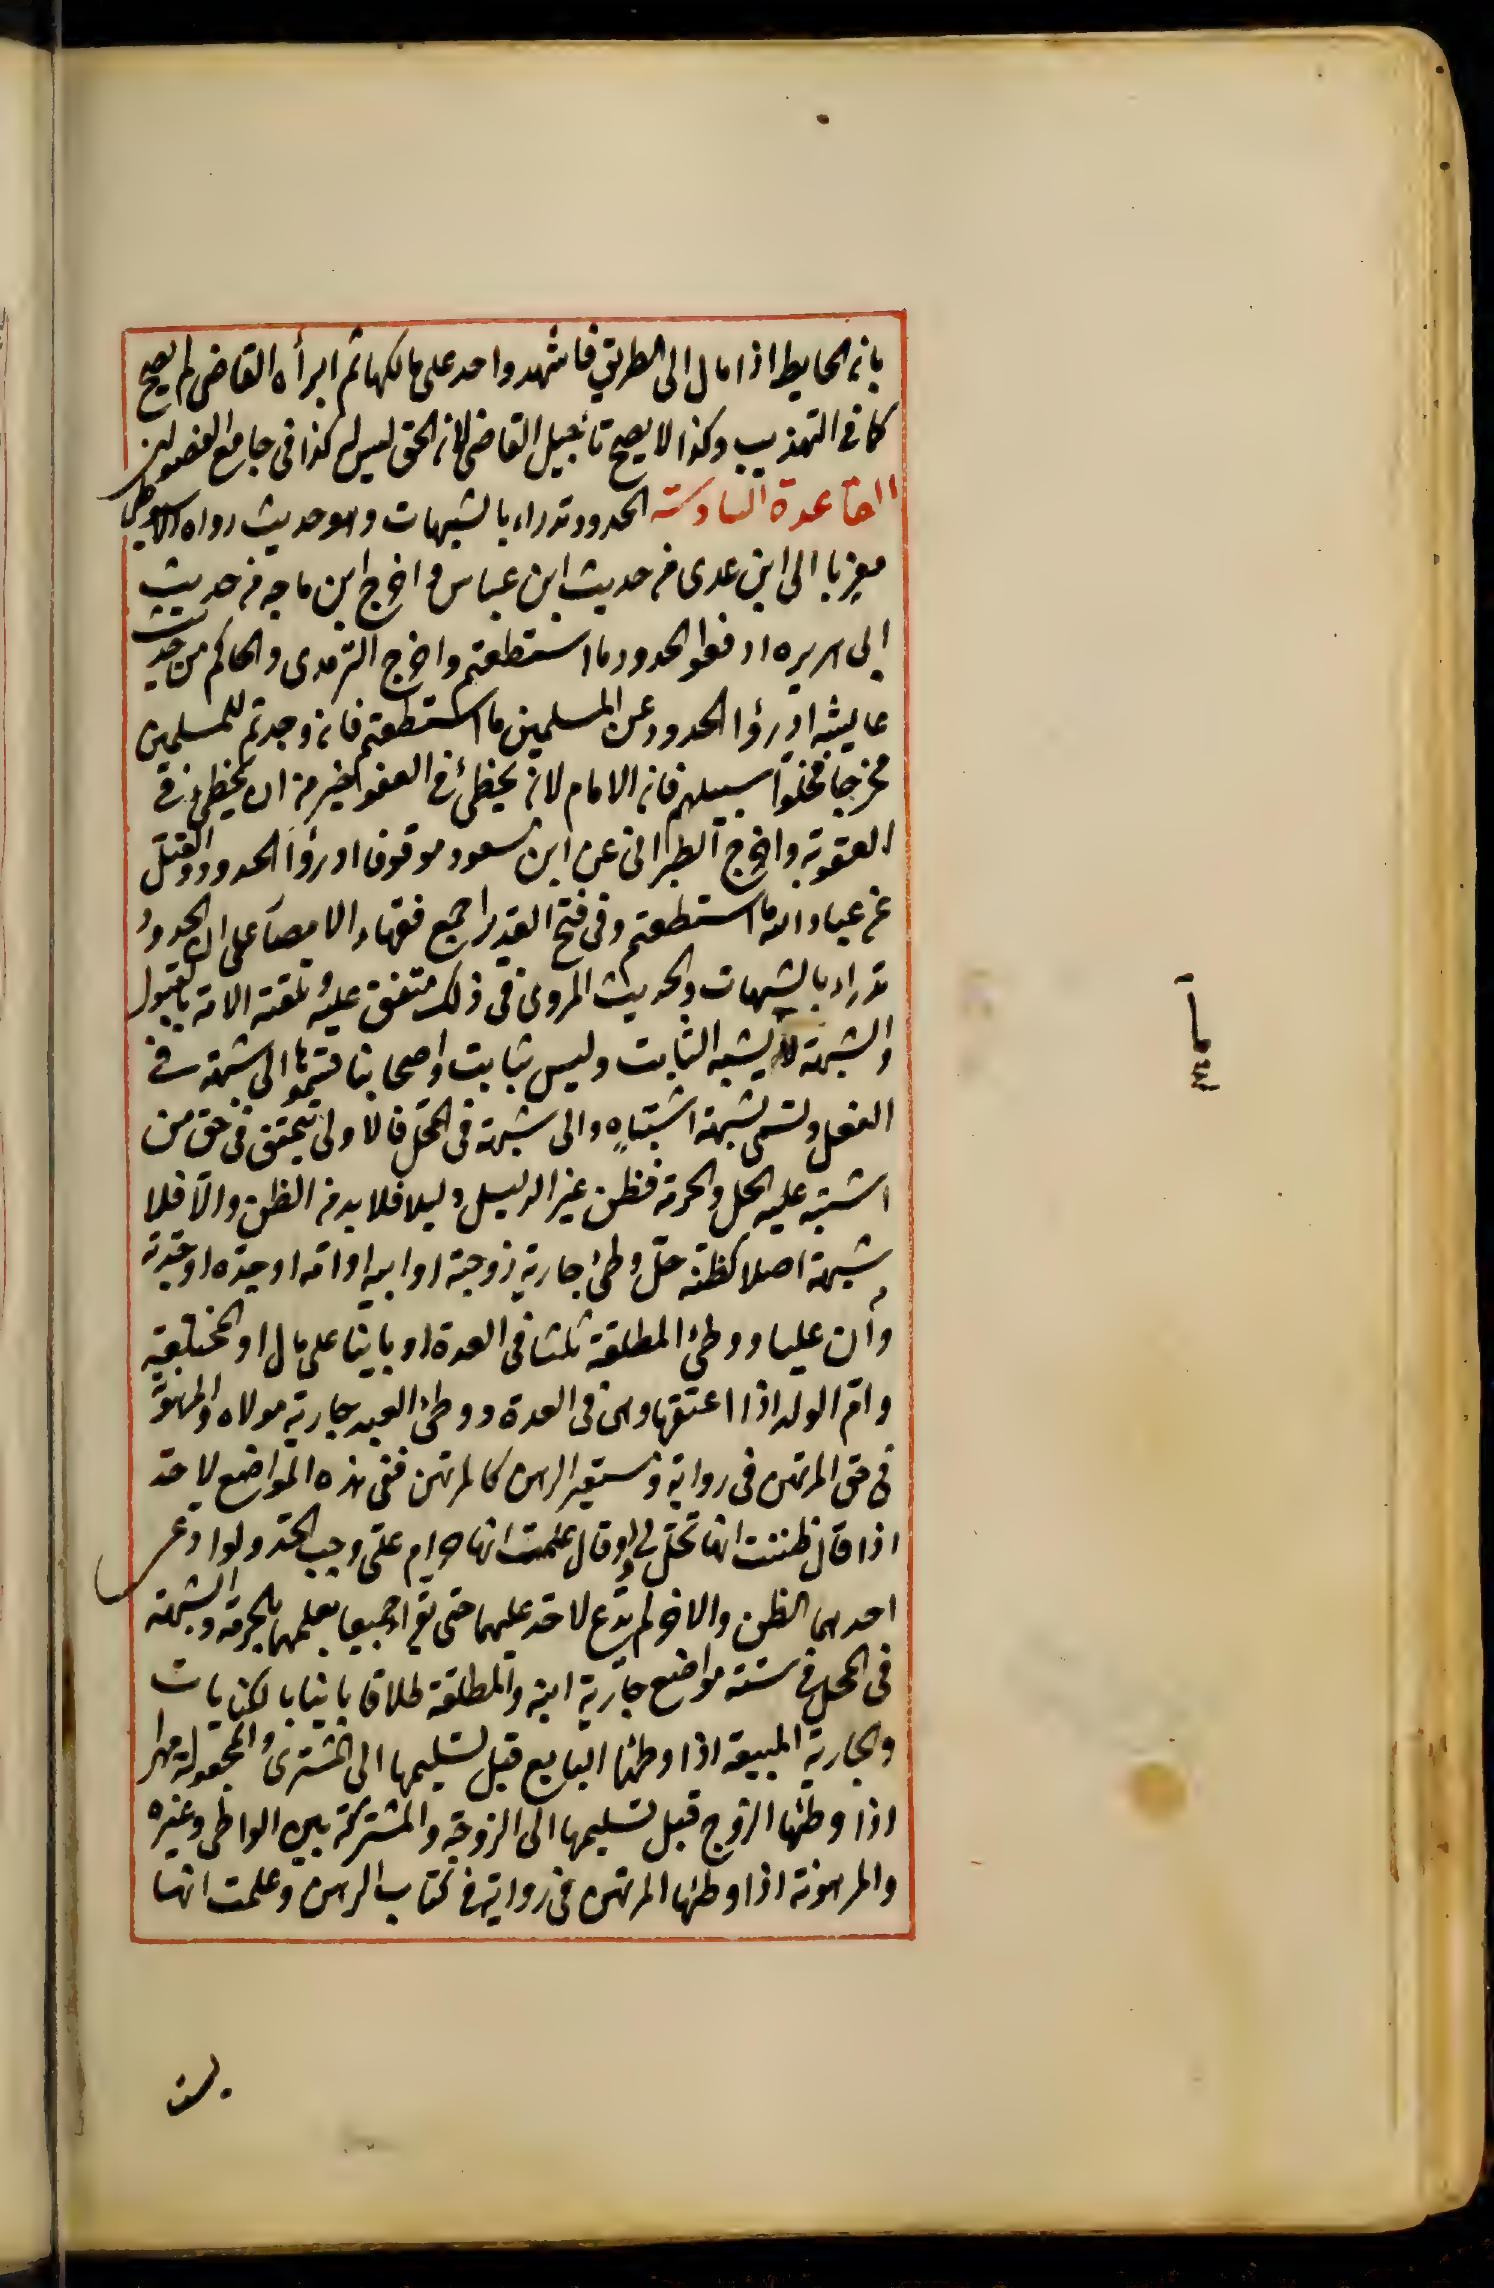 بان الحايط اذا مال الى الطريق فاشهد واحد على مالكها ثم ابرأه القاضى لم يصح
كما فى التهذيب وكذا لا يصح تأجيل القاضى لان الحق ليس له كذا فى جامع الفصولين
القاعدة السادسة الحدود تدراء بالشبهات وهو حديث رواه الاسيوطى
معزيا الى ابن عدى من حديث ابن عباس واخرج ابن ماجه من حديث
ابى هريره ادفعوا الحدود ما استطعتم واخرج الترمدى والحاكم من حديث
عايشه ادرؤا الحدود عن المسلمين ما استطعتم فان وجدتم للمسلمين
مخرجا فخلوا سبيلهم فان الامام لان يخطئ فى العفو خير من ان يخطئ فى
العقوبة واخرج الطبرانى عن ابن مسعود موقوفا ادرؤا الحدود والقتل
عن عباد الله ما استطعتم وفى فتح القدير اجمع فقهاء الامصار على ان الحدود
تدراء بالشبهات والحديث المروى فى ذلك متفق عليه وتلقته الامة بالقبول
والشبهة يشبه الثابت وليس بثابت واصحابنا قسموها الى شبهة فى
الفعل وتسمى شبهة اشتباه والى شبهة فى المحل فالاولى تتحقق فى حق من
اشتبه عليه الحل والحرمة فظن غير الدليل دليلا فلا بد من الظن والا فلا
شبهة اصلا كظنه حل وطئ جارية زوجته او ابيه او امه او جده او جدته
وان عليا ووطئ المطلقة ثلثا فى العدة او باينا على مال او المختلعة
وام الولد اذا اعتقها وهى فى العدة ووطئ العبد جارية مولاه والمرهونة
فى حق المرتهن فى رواية ومستعير الرهن كالمرتهن ففى هذه المواضع لا حد
اذا قال ظننت انها تحل لى ولو قال علمت انها حرام على وجب الحد ولو ادعى
احدهما الظن والاخر لم يدع لا حد عليهما حتى يقرا جميعا بعلمهما بالحرمة والشبهة
فى المحل فى ستة مواضع جارية ابنه والمطلقة طلاقا باينا بالكنايات
والجارية المبيعة اذا وطئها البايع قبل تسليمها الى المشترى والمجعولة مهرا
اذا وطئها الزوج قبل تسليمها الى الزوجة والمشتركة بين الواطى وغيره
والمرهونة اذا وطئها المرتهن فى رواية فى كتاب الرهن وعلمت انها